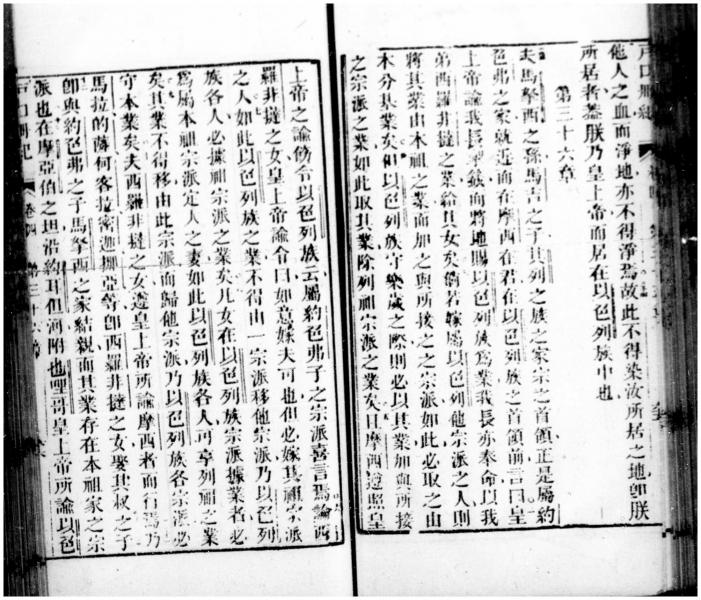 戶口冊紀
他人之血而淨地亦不得淨焉故此不得染汝所居之地卽朕
所居者蓋朕乃皇上帝而居在以色列族中也
第三十六章
夫馬拏西之孫馬吉之子其列之族之家宗之首領正是屬約
色弗之家就近而在摩西在君在以色列族之首領前言曰皇
上帝諭我長乘鬮而將地賜以色列族爲業我長亦奉命以我
弟西羅非撻之業給其女矣倘若嫁屬以色列他宗派之人則
將其業由本祖之業而加之與所接之之宗派如此必取之由
本分基業矣但以色列族守樂歲之際則必以其業加與所接
之宗派之業如此取其業除列祖宗派之業矣且摩西遵照皇
上帝之諭飭令以色列族云屬約色弗子之宗派善言焉論西
羅非撻之女皇上帝諭令曰如意嫁夫可也但必嫁其祖宗派
之人如此以色列族之業不得由一宗派移他宗派乃以色列
族各人必據祖宗派之業矣凡女在以色列族宗派據業者必
爲屬本祖宗派定人之妻如此以色列族各人可享列祖之業
矣其業不得移由此宗派而歸他宗派乃以色列族各宗派必
守本業矣夫西羅非撻之女遵皇上帝所諭摩西者而行焉乃
馬拉的薩何客拉密迦挪亞等卽西羅非撻之女娶其叔之子
卽與約色弗之子馬拏西之家結親而其業存在本祖家之宗
派也在摩亞伯之坦沿約耳但河附也哩哥皇上帝所諭以色
戶口冊紀 卷四 第三十六章